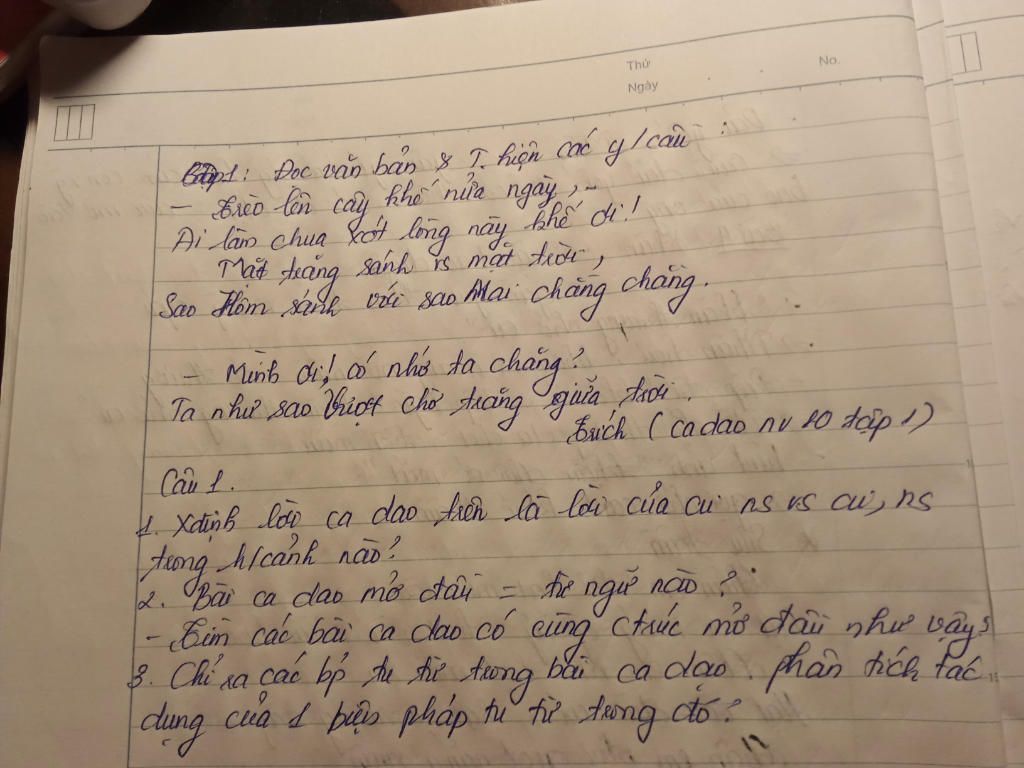 Thứ
No.
Ngày
1: Đọc văn bản & T. hiện các y/cầu:
- Trèo lên cây khế nửa ngày,
Ai làm chua xót lòng này khế ơi!
Mặt trăng sánh vs mặt trời,
Sao Hôm sánh với sao Mai chằng chằng.
- Mình ơi! có nhớ ta chăng?
Ta như sao Vượt chờ trăng giữa trời.
Trích (ca dao nv 10 tập 1)
Câu 1.
1. Xđịnh lời ca dao trên là lời của ai ns vs ai, ns
trong h/cảnh nào?
2. Bài ca dao mở đầu = từ ngữ nào?
- Tìm các bài ca dao có cùng ctrúc mở đầu như vậy?
3. Chỉ ra các bp tu từ trong bài ca dao. phân tích tác
dụng của 1 biện pháp tu từ trong đó?